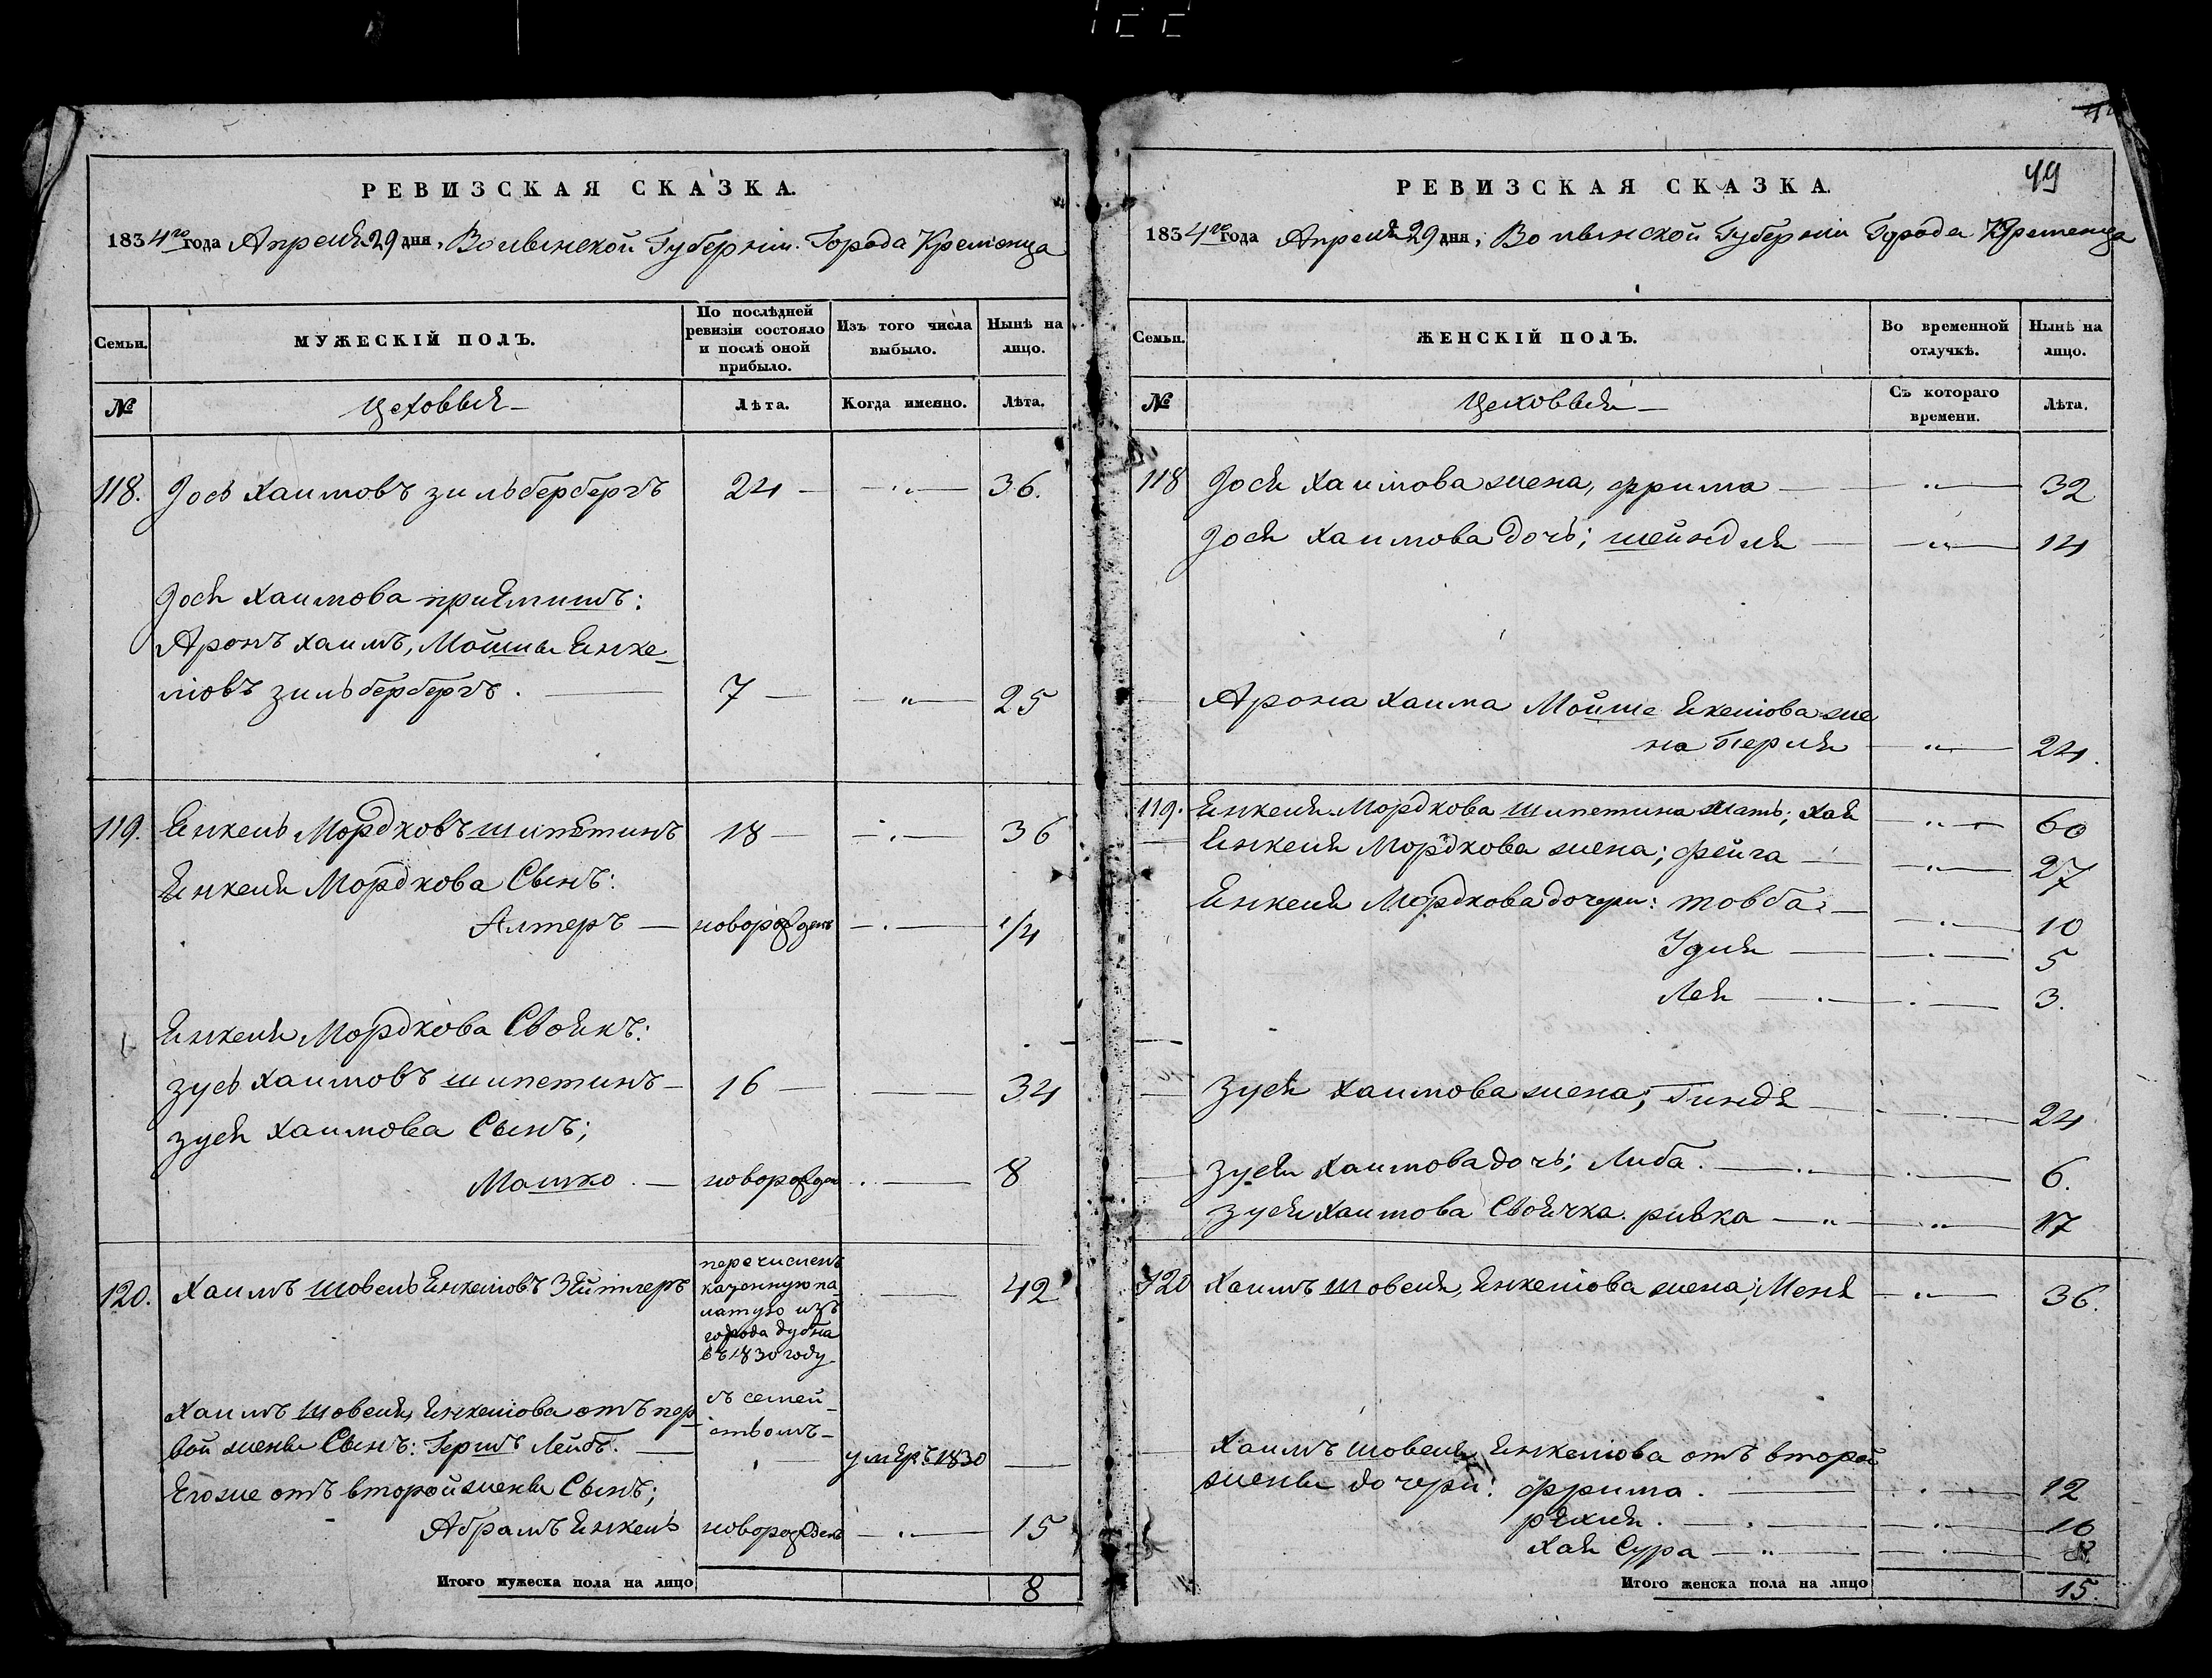 РЕВИЗСКАЯ СКАЗКА.
1834го года Апреля 29 дня, Волынской Губернiи Города Кременца
Семьи.
МУЖЕСКІЙ ПОЛЪ.
По послѣдней ревизіи состояло и послѣ оной прибыло.
Изъ того числа выбыло.
Нынѣ на лицо.
№
Цеховыя
Лѣта.
Когда именно.
Лѣта.
118. Iось Хаимовъ Зильбербергъ 24 — — „ — 36.
Iося Хаимова приѣмишъ:
Аронъ Хаимъ, Мошиы Енке-
ловъ Зильбербергъ. — 7 — — „ — 25
119. Енкель Мордковъ Шипѣтинъ 18 — — 36
Енкеля Мордкова Сынъ:
Алтеръ — новорожденъ — 1/4
Енкеля Мордкова Своякъ:
Зусь Хаимовъ Шипетинъ — 16 — — 34
Зуся Хаимова Сынъ;
Мошко — новорожден — 8
120. Хаимъ Шовель Енкеловъ Зейтлеръ
перечисленъ
казенную па
латую изъ
города Дубна
въ 1830 году
съ семей-
ствомъ —
— 42
Хаимъ Шовеля Енкелова отъ пер
вой жены Сынъ: Гершъ Лейбъ. — умеръ 1830 —
Его же отъ второй жены Сынъ;
Абрамъ Енкель новорожденъ — 15
Итого мужеска пола на лицо 8
49
РЕВИЗСКАЯ СКАЗКА.
1834го года Апреля 29 дня, Волынской Губернiи Города Кременца
Семьи.
ЖЕНСКІЙ ПОЛЪ.
Во временной отлучкѣ.
Нынѣ на лицо.
№
Цеховыя
Съ котораго времени.
Лѣта.
118 Iося Хаимова жена, Фрима — „ — 32
Iося Хаимова дочь; Шейндля — „ — 14
Арона Хаима Мойше Енкелова же
на Перля — „ — 24.
119. Енкеля Мордкова Шипетина мать; Хая — „ — 60
Енкеля Мордкова жена; Фейга — „ — 27
Енкеля Мордкова дочери: Товба — 10
Удля — 5
Лея — 3.
Зуся Хаимова жена; Гиндя — 24
Зуся Хаимова дочь; Либа. — 6.
Зуся Хаимова Своячка. Ривка — „ — 17
120 Хаимъ Шовеля Енкелова жена; Меня — „ — 36.
Хаимъ Шовеля Енкелова отъ второй
жены дочери: Фрима. — 12
Рехля. — 10
Хая Сура — „ — 8.
Итого женска пола на лицо 15.